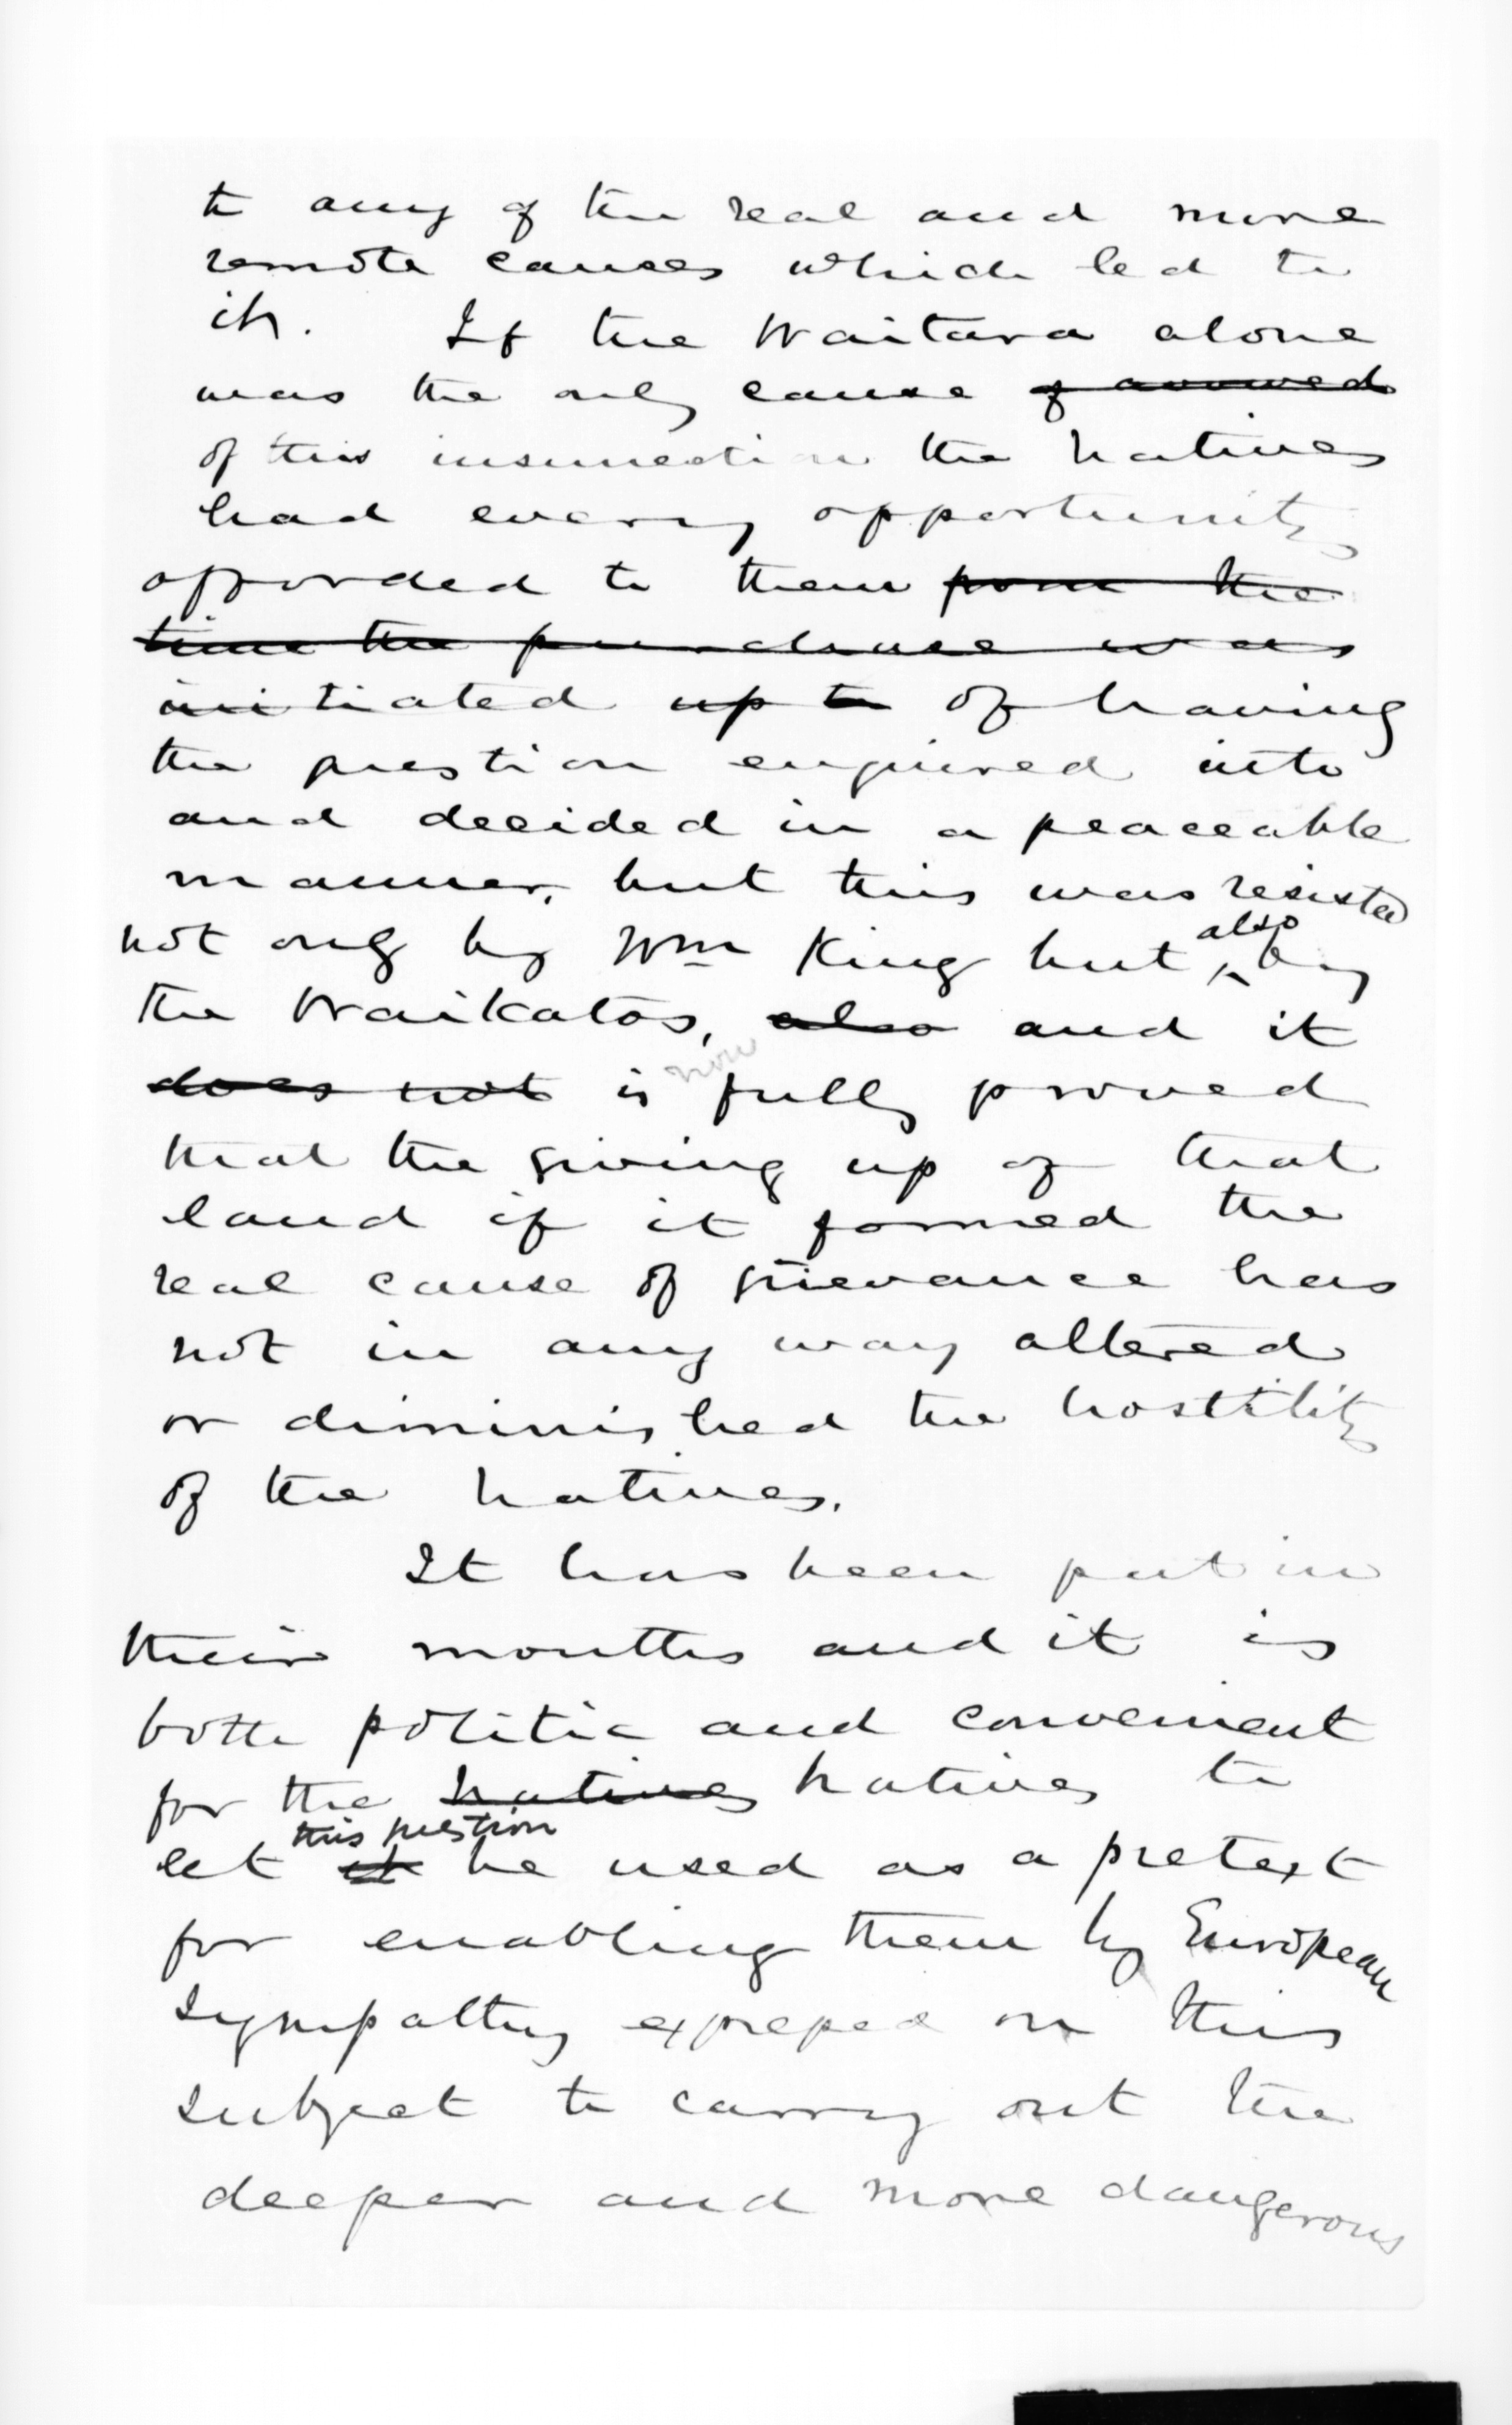 to any of the real and more
remote causes which led to
it. If the Waitara alone
was the only cause of avowed
of this insurrection the Natives
had every opportunity
afforded to them from the
time the purchase was
initiated up to of having
the question enquired into
and decided in a peaceable
manner, but this was resisted
not only by Wm King but also by
the Waikatos, also and it
does not is now fully proved
that the giving up of that
land if it formed the
real cause of grievance has
not in any way altered
or diminished the hostility
of the Natives.
It has been put in
their mouths and it is
both politic and convenient
for the Natives Natives to
let it this question be used as a pretext
for enabling them by European
sympathy expressed on this
subject to carry out the
deeper and more dangerous